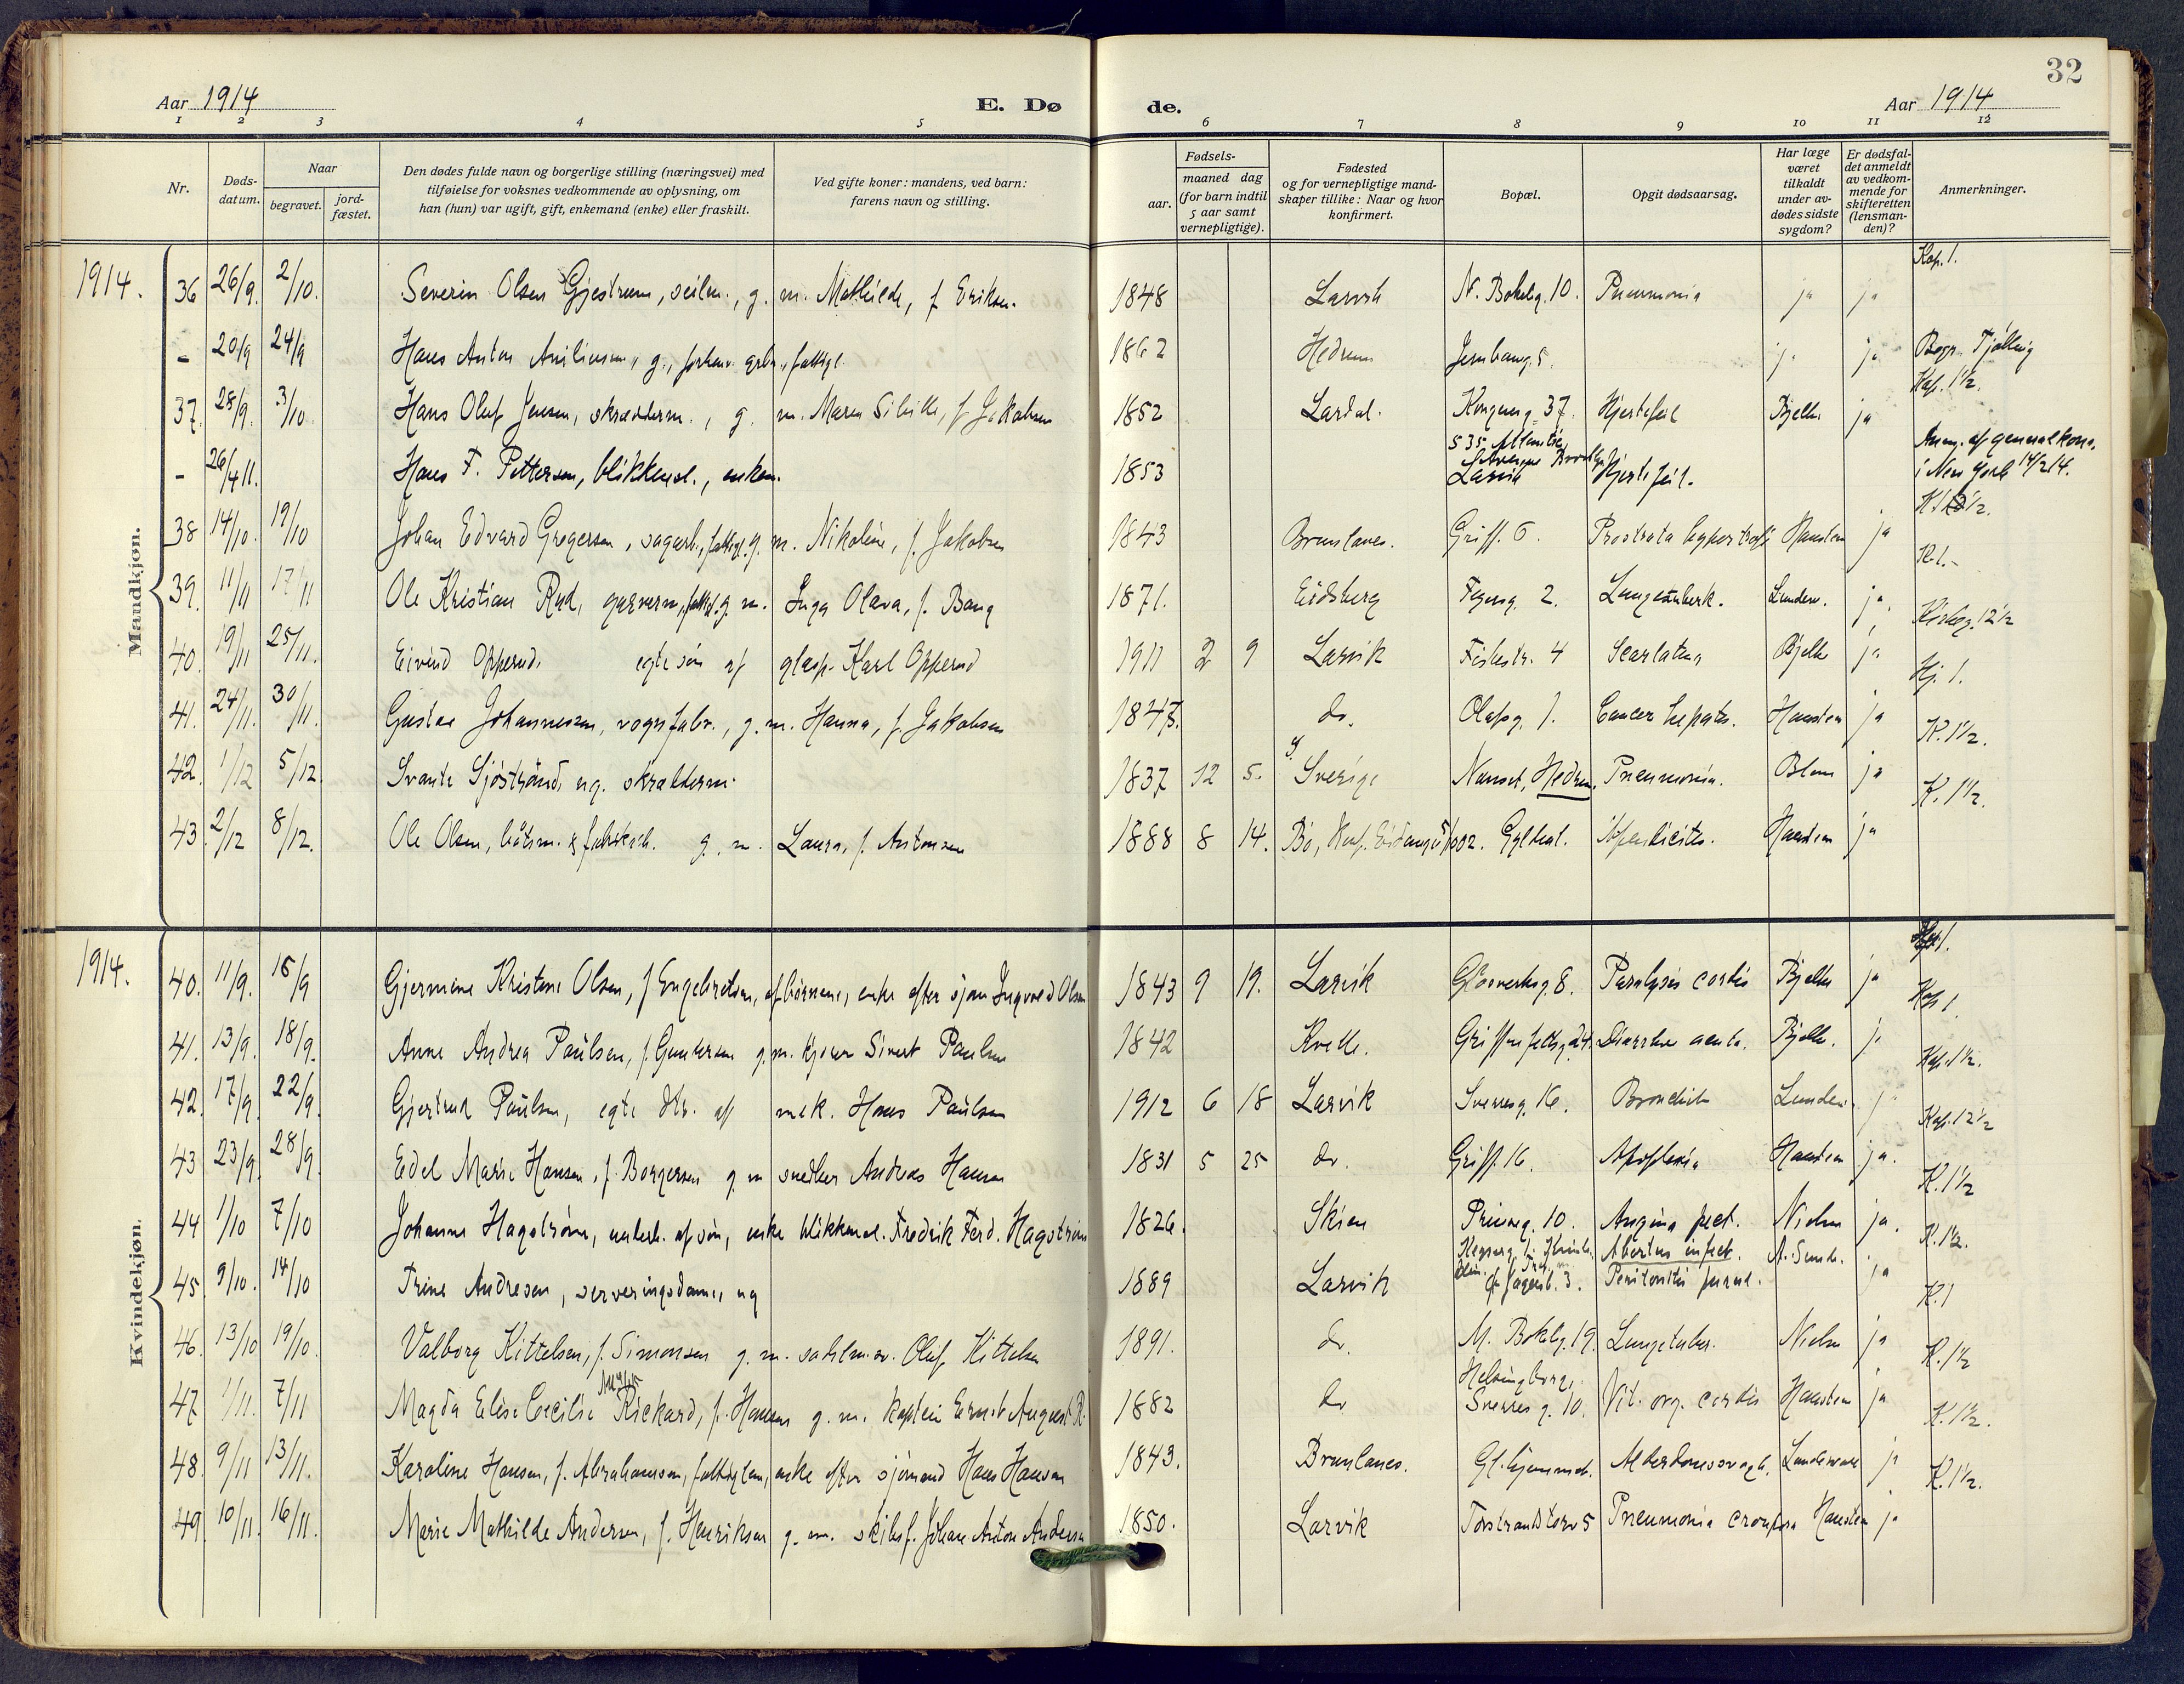 32
Aar 1914 E. Døde. Aar 1914
1 2 3 4 5 6 7 8 9 10 11 12
Nr.
Døds-datum.
Naar
begravet.
jord-fæstet.
Den dødes fulde navn og borgerlige stilling (næringsvei) med
tilføielse for voksnes vedkommende av oplysning, om
han (hun) var ugift, gift, enkemand (enke) eller fraskilt.
Ved gifte koner: mandens, ved barn:
farens navn og stilling.
Fødsels-
aar. maaned dag
(for barn indtil
5 aar samt
vernepligtige).
Fødested
og for vernepligtige mand-
skaper tillike: Naar og hvor
konfirmert.
Bopæl.
Opgit dødsaarsag.
Har læge
været
tilkaldt
under av-
dødes sidste
sygdom?
Er dødsfal-
det anmeldt
av vedkom-
mende for
skifteretten
(lensman-
den)?
Anmerkninger.
Mandkjøn.
1914. 36 26/9. 2/10. Severin Olsen Gjestrum, seilm., g. m. Mathilde, f. Eriksen. 1848 Larvik N. Bokelg. 10. Pneumonia ja ja Kap. 1.
- 20/9 24/9 Hans Anton g., forhenv. fattigl. 1862 Hedrum Jernbaneg. 5. ja ja Begr. Tjølling
37. 28/9. 3/10. Hans Oluf Jensen, skrædderm., g. m. Maren f. Jakobsen 1852 Lardal. Kongeg. 37. Hjertefeil Bjelke ja Kap. 1½.
- 26/4 11. Hans F. Pettersen, blikkensl., enkem. 1853 535 Atlantic Avenue Brooklyn Larvik Hjertefeil. Anm. af generalkons. i New York 14/2 14.
38 14/10. 19/10 Johan Edvard Gregersen, sagarb., fattigl. g. m. Nikoline, f. Jakobsen 1843 Brunlanes. Griff. 6. Prostrata hypertrofi Hansteen ja
39. 11/11 17/11 Ole Kristian Rud, garverm., fattigl. g. m. Inga Olava, f. Bang 1871. Eidsberg 2. Lungetuberk. Lundew. ja, K. 1.-
40. 19/11 25/11. Eivind Opperud, egte søn af glasp. Karl Opperud 1911 2 9 Larvik Fiskestr. 4 Scarlatina Bjelke ja 12½
41. 24/11. 30/11. Gustav Johannessen, vognfabr., g. m. Hanna, f. Jakobsen do. Olafsg. 1. Cancer hepatis. Hansteen ja Hj. 1.
42. 1/12 5/12. Svante Sjöstrand, ug. skrædderm. 1837 12 5. Sverige Nanset, Hedrum. Pneumonia. Blom ja K. 1½.
43. 2/12 8/12. Ole Olsen, båtsm. g. m. Laura, f. Antonsen 1888 8 14. Bø, Konf. Eidanger 1902. Gyldenl. Appendicitis. Hansteen ja K. 1½.
Kvindekjøn.
1914. 40. 11/9. 15/9 Gjermine Kristine Olsen, f. Engebretsen, af børnene, enke efter sjøm. Ingvald Olsen 1843 9 19. Larvik Glasverksg. 8. Paralysis cordis Bjelke ja
41. 13/9. 18/9. Anne Andrea Paulsen, f. Gundersen g. m. kjører Sivert Paulsen 1842 Kvelle. Griffenfeldtsg. 24. Diarrhoe acuta. Bjelke. ja Kap. 1.
42. 17/9. 22/9. Gjertrud Paulsen, egte dtr. af mek. Hans Paulsen 1912 6 18 Larvik Sverresg. 16. Bronchit Lundew. ja Kap. 1½.
43 23/9. 28/9. Edel Marie Hansen, f. Borgersen g. m. snedker Andreas Hansen 1831 5 25 do. Griff. 16. Apoplexia Hansteen ja. Kap. 12½
44 1/10 7/10 Johanne Hagstrøm, underh. af søn, enke blikkensl. Fredrik Ferd. Hagstrøm 1826. Skien Prinseg. 10. Angina pect. Nielsen ja. K. 1½
45. 9/10. 14/10 Trine Andresen, serveringsdame, ug 1889 Larvik 3. Abortus infect. Peritonitis purul. ja K. 1½.
46. 13/10 19/10. Valborg Kittelsen, f. Simonsen g. m. Oluf Kittelsen 1891. do. M. Bokelg. 19. Lungetuber. Nielsen ja K. 1
47 1/11. 7/11 Magda Elise Cecilie Rickard, f. Hansen g. m. kaptein Ernst August R. 1882 do Helsingborg, Sverres g. 10. Vit. org. cordis Hansteen ja K. 1½
48. 9/11 13/11. Karoline Hansen, f. Abrahamsen, fattiglem, enke efter sjømand Hans Hansen 1843. Brunlanes. Gl. hjemmet. Alderdomssvagh. Lundewall ja K. 1½.
49. 10/11. 16/11. Marie Mathilde Andersen, f. Henriksen g. m. skibsf. Johan Anton Andersen 1850. Larvik Torstrandtorv 5 Pneumonia crouposa Hansteen ja K. 1½.